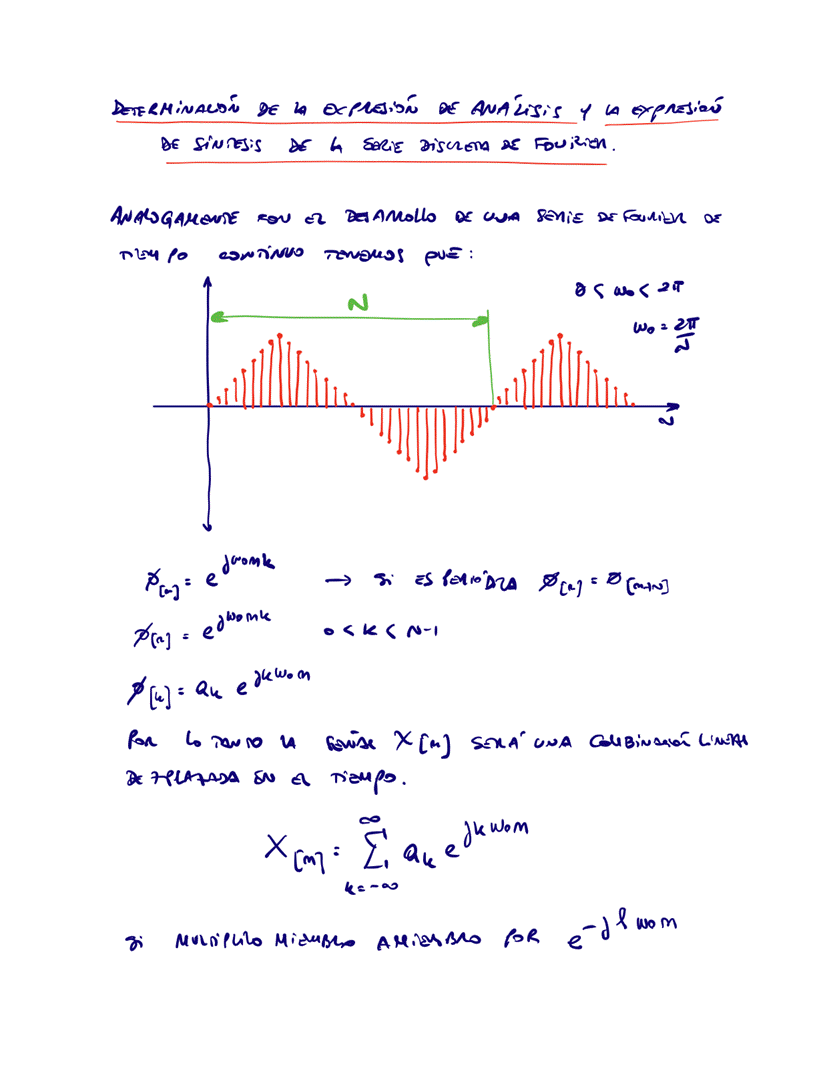 DETERMINACIÓN DE LA EXPRESIÓN DE ANÁLISIS Y LA EXPRESIÓN
DE SÍNTESIS DE LA SERIE DISCRETA DE FOURIER.
ANALOGAMENTE CON EL DESARROLLO DE UNA SERIE DE FOURIER DE
TIEMPO CONTÍNUO TENEMOS QUE:
0 < ω₀ < 2π
N
ω₀ = 2π/N
n
ø[n] = e^{jω₀nk} → SI ES PERIÓDICA ø[n] = ø[n+N]
ø[n] = e^{jω₀nk} 0 < k < N-1
ø[k] = a_k e^{jkω₀n}
POR LO TANTO LA SEÑAL X[n] SERÁ UNA COMBINACIÓN LINEAL
DESPLAZADA EN EL TIEMPO.
X[n] = ∑_{k=-∞}^{∞} a_k e^{jkω₀n}
SI MULTIPLICO MIEMBRO A MIEMBRO POR e^{-jlω₀n}